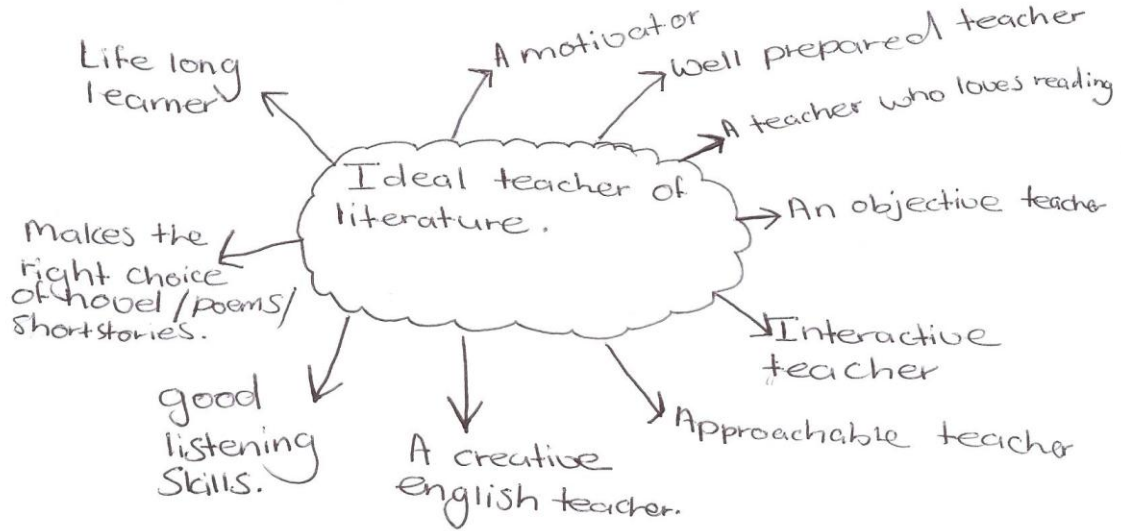 Ideal teacher of
literature.
A motivator
Well prepared teacher
A teacher who loves reading
An objective teacher
Interactive
teacher
Approachable teacher
A creative
english teacher.
good
listening
skills.
Makes the
right choice
of novel/poems/
short stories.
Life long
learner